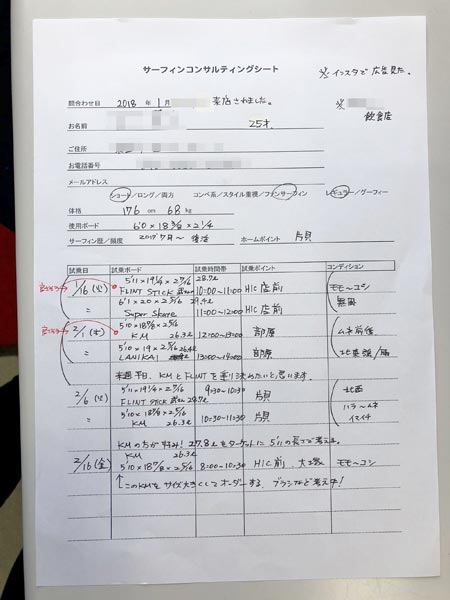 サーフィンコンサルティングシート
※ インスタで広告見た。
問合わせ日 2018 年 1 月 来店されました。
※
お名前 25才
飲食店
ご住所
お電話番号
メールアドレス
ショート／ロング／両方 コンペ系／スタイル重視／ファンサーフィン レギュラー／グーフィー
体格 176 cm 68 kg
使用ボード 6'0 × 18 3/8 × 2 1/4
サーフィン歴／頻度 2017 7月〜 復活 ホームポイント 片貝
試乗日 試乗ボード 試乗時間帯 試乗ポイント コンディション
1/16 (火) 5'11 × 19 1/4 × 2 7/16 28.7L
FLINT STICK 10:00〜11:00 HIC店前 モモ〜コシ
〃 6'1 × 20 × 2 5/16 29.4L 無風
Super Share 11:00〜12:00 HIC店前
2/1 (木) 5'10 × 18 7/8 × 2 5/16
KM 26.3L 12:00〜13:00 部原 ムネ前後
〃 5'10 × 19 × 2 5/16 26.4L
LANIKAI 13:00〜14:00 部原 北東強/
来週平日、KMとFLINTを乗り決めたいと思います。
2/6 (火) 5'11 × 19 1/4 × 2 7/16 9:30〜10:30 片貝 北西
FLINT STICK 28.7L ハラ〜ムネ
〃 5'10 × 18 7/8 × 2 5/16 イマイチ
KM 26.3L 10:30〜11:30 片貝
KMの方が好み! 27.8Lをターゲットに5'11の長さで考える。
KM 26.3L
2/16 (金) 5'10 × 18 7/8 × 2 5/16 8:00〜10:30 HIC前 モモ〜コシ
↑このKMをサイズ大きくしてオーダーする、ブラシなど考え中!